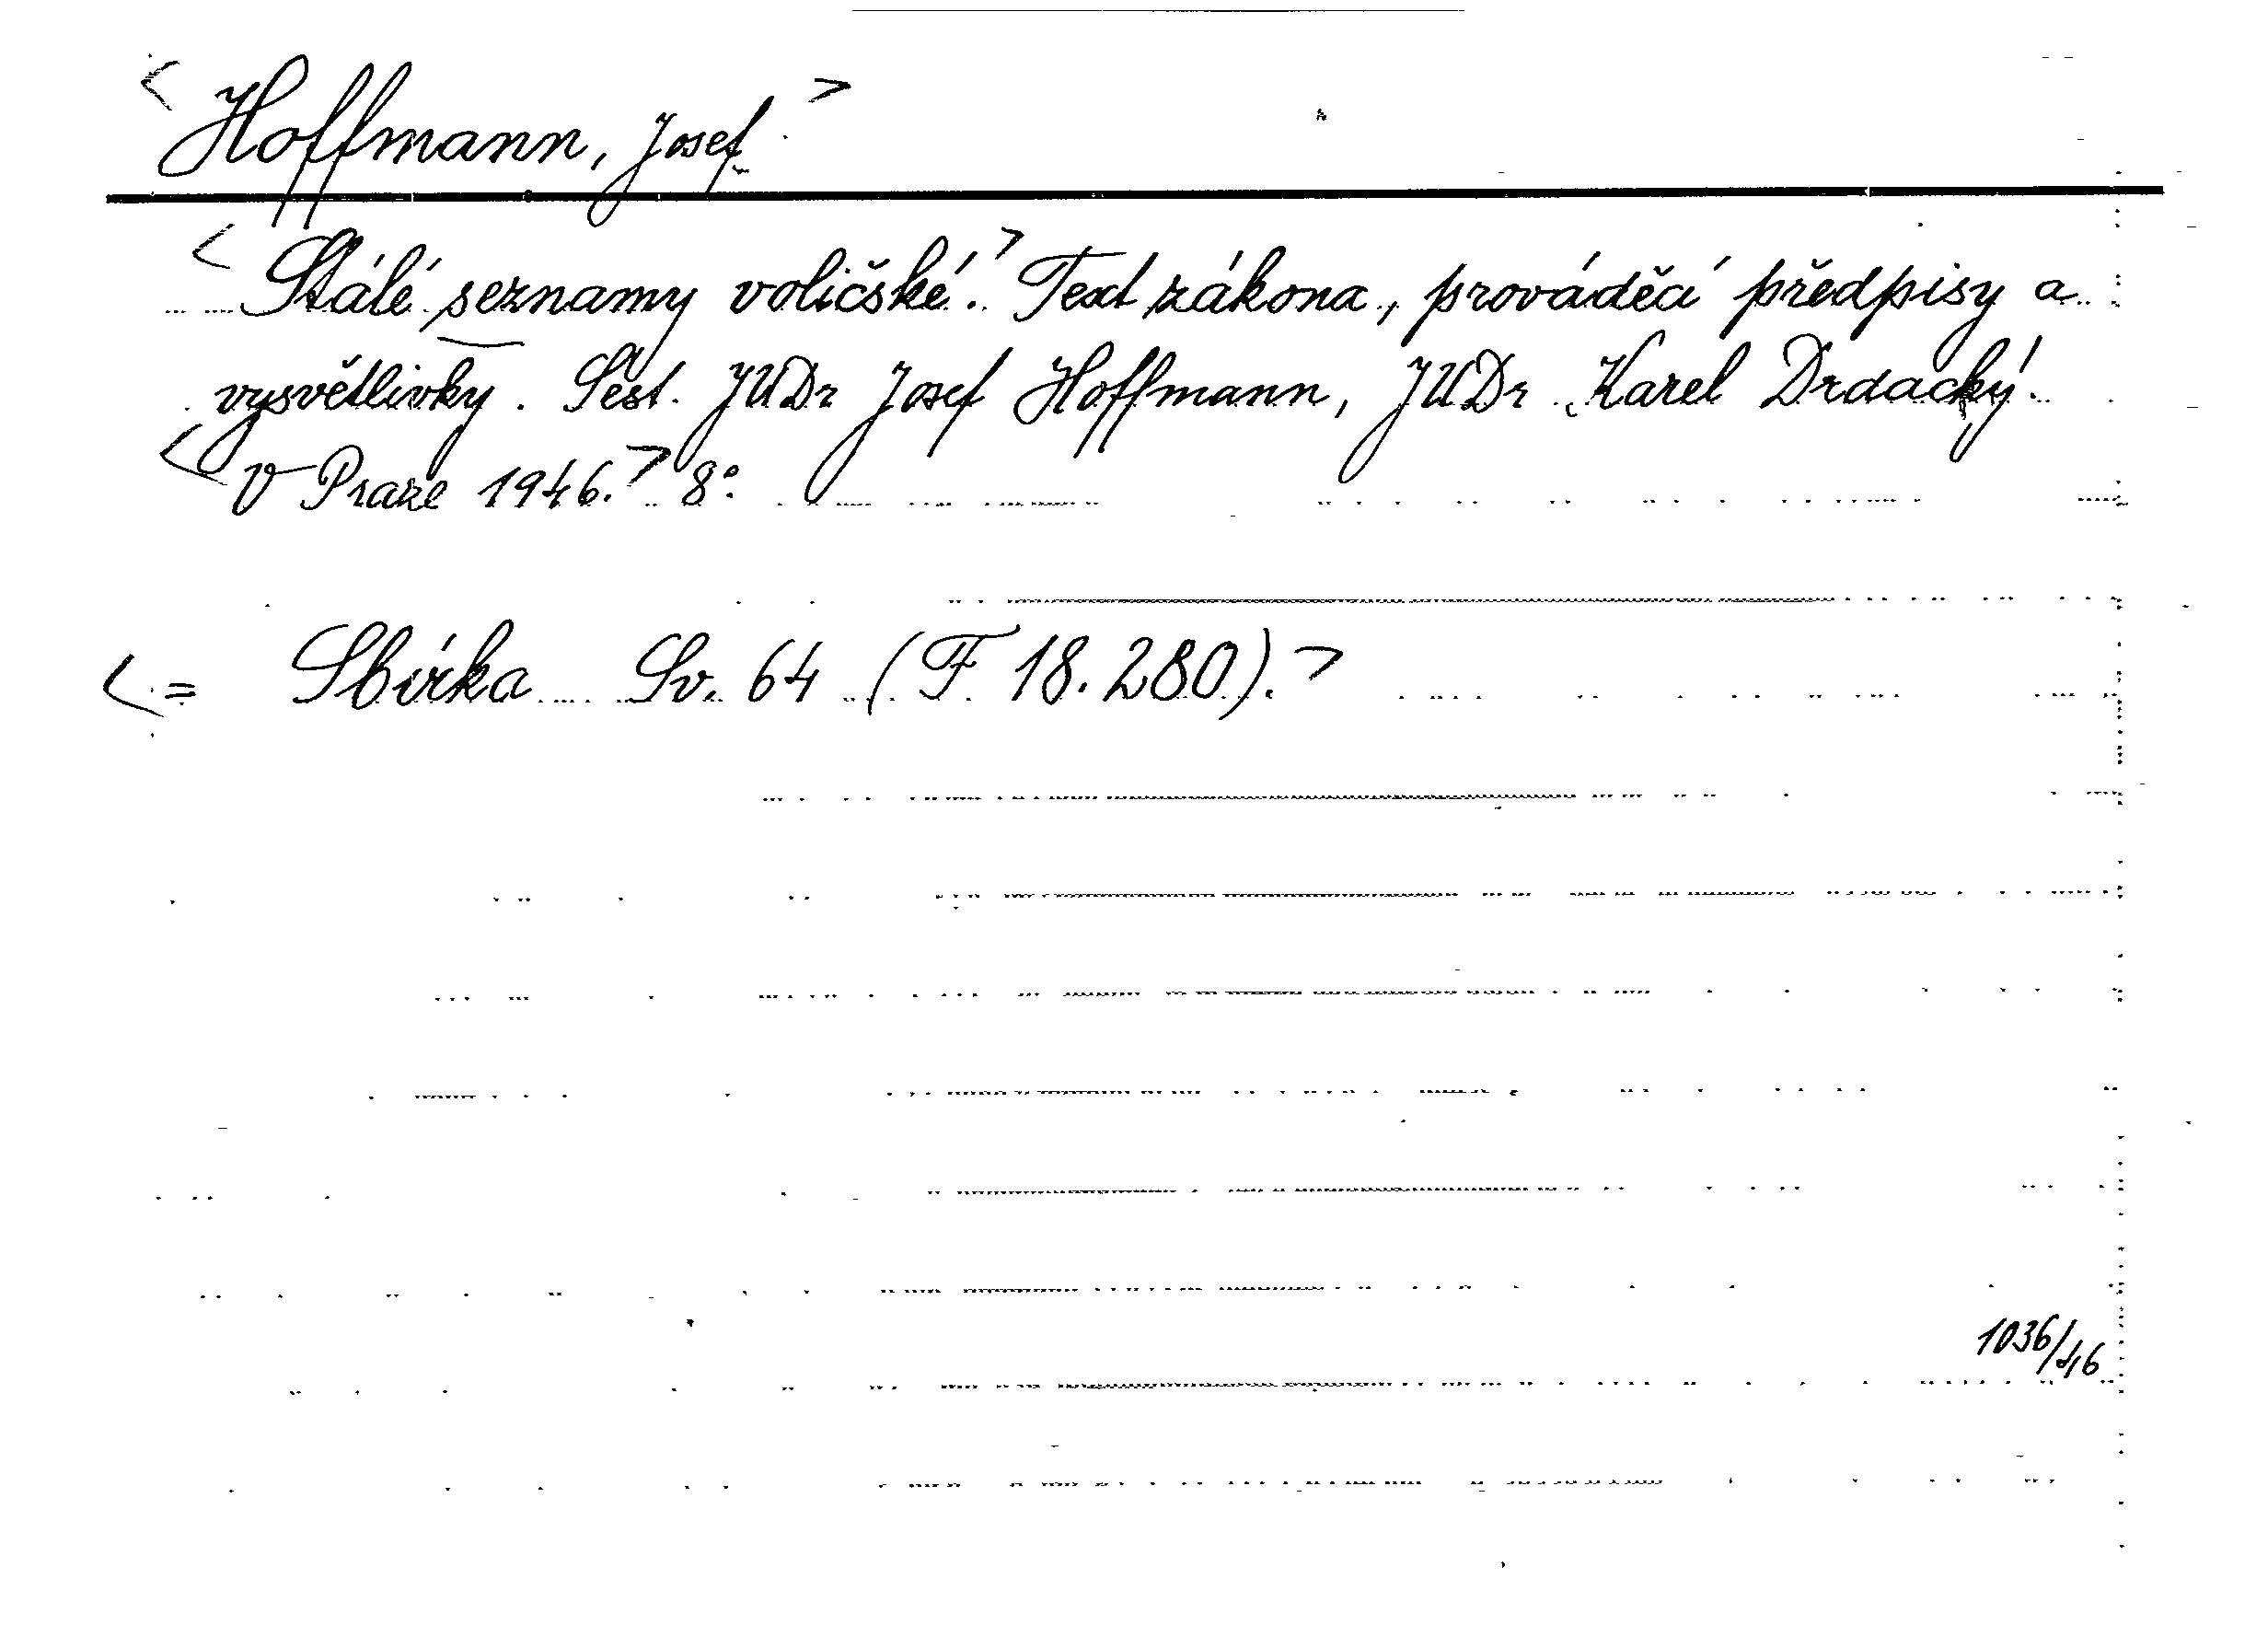 < Hoffmann, Josef. >
< Stálé seznamy voličské. > Text zákona, prováděcí předpisy a
vysvětlivky. Sest. JUDr Josef Hoffmann, JUDr Karel Drdacký.
< V Praze 1946. > 8°.
< = Sbírka Sv. 64 (F 18.280). >
1036/46